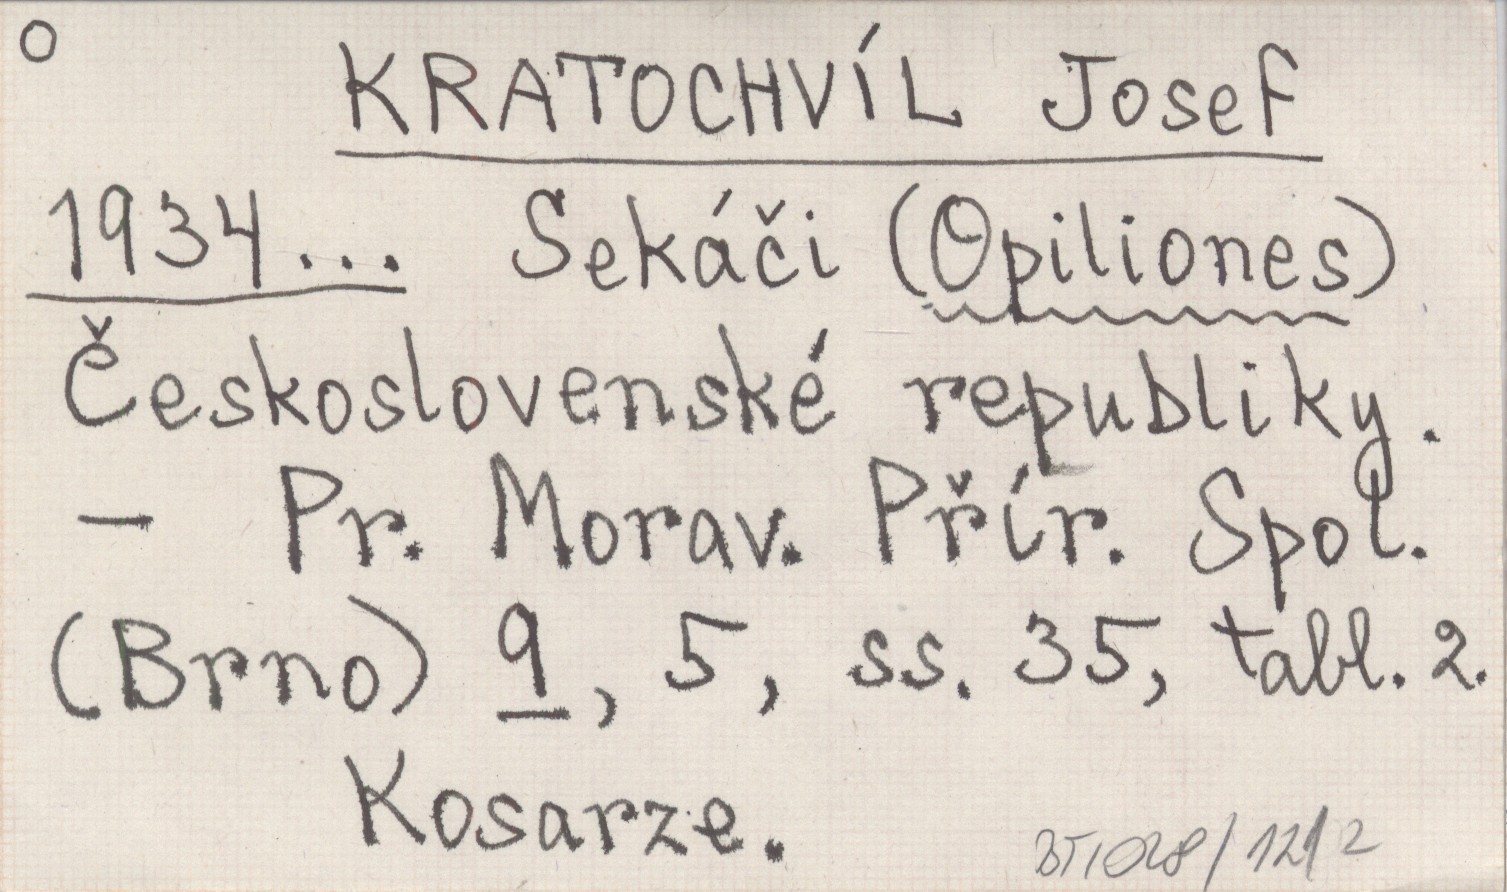 O
KRATOCHVÍL Josef
1934... Sekáči (Opiliones)
Československé republiky.
— Pr. Morav. Přír. Spol.
(Brno) 9, 5, ss. 35, tabl. 2.
Kosarze.